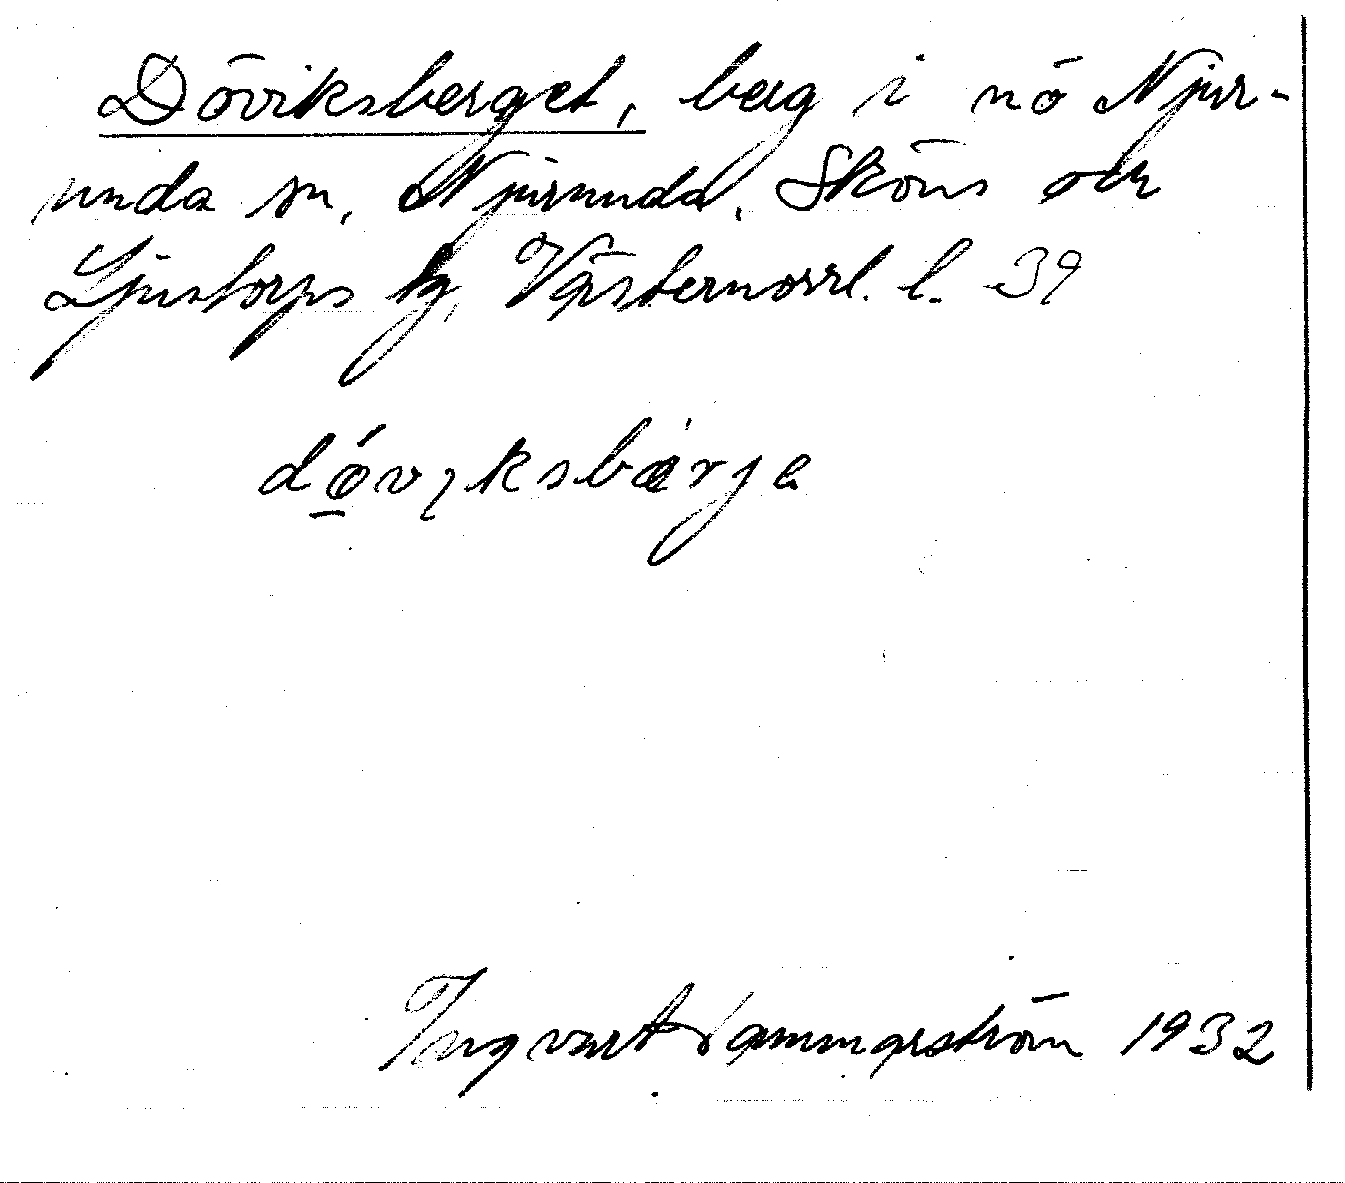 Döviksberget, berg i nö Njur-
unda sn, Njurunda, Sköns och
Ljustorps tg, Västernorrl. l. 39
dǿ̱vɩksbärje
Ingvart 1932